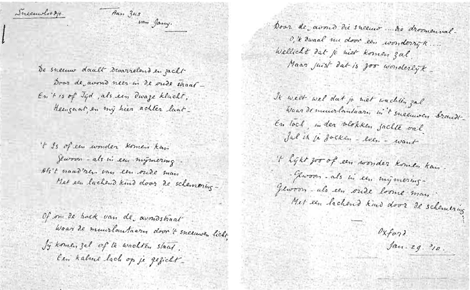 Sneeuwliedje
Aan Zus
van Jany.
De sneeuw daalt dwarrelend en zacht
Door de, avond neer in de oude straat
En 't is of Tijd, als een dwaze klucht,
Heengaat, en mij hier achter laat.
't Is of een wonder komen kan
Gewoon - als in een mijmering
Als 't naad'ren van een oude man
Met een lachend kind door de schemering.
Of om de hoek van de, avondstraat
Waar de muurlantaarn door 't sneeuwen licht,
Jij komen zal of te wachten staat.
Een kalme lach op je gezicht.
Door de, avond die sneeuwt de droomenval
O, 'k dwaal nu door een wonderrijk
Wellicht dat je niet komen zal
Maar juist dat is zoo wonderlijk.
Ik weet wel dat je niet wachten zal
Waar de muurlantaarn in 't sneeuwen brandt.
En toch, in der vlokken zachte val
Zal ik je zoeken
't Lijkt zoo of een wonder komen kan.
Gewoon - als in een mijmering.
Gewoon - als een oude loome man
Met een lachend kind door de schemering
Oxford
Jan. 29. '10.